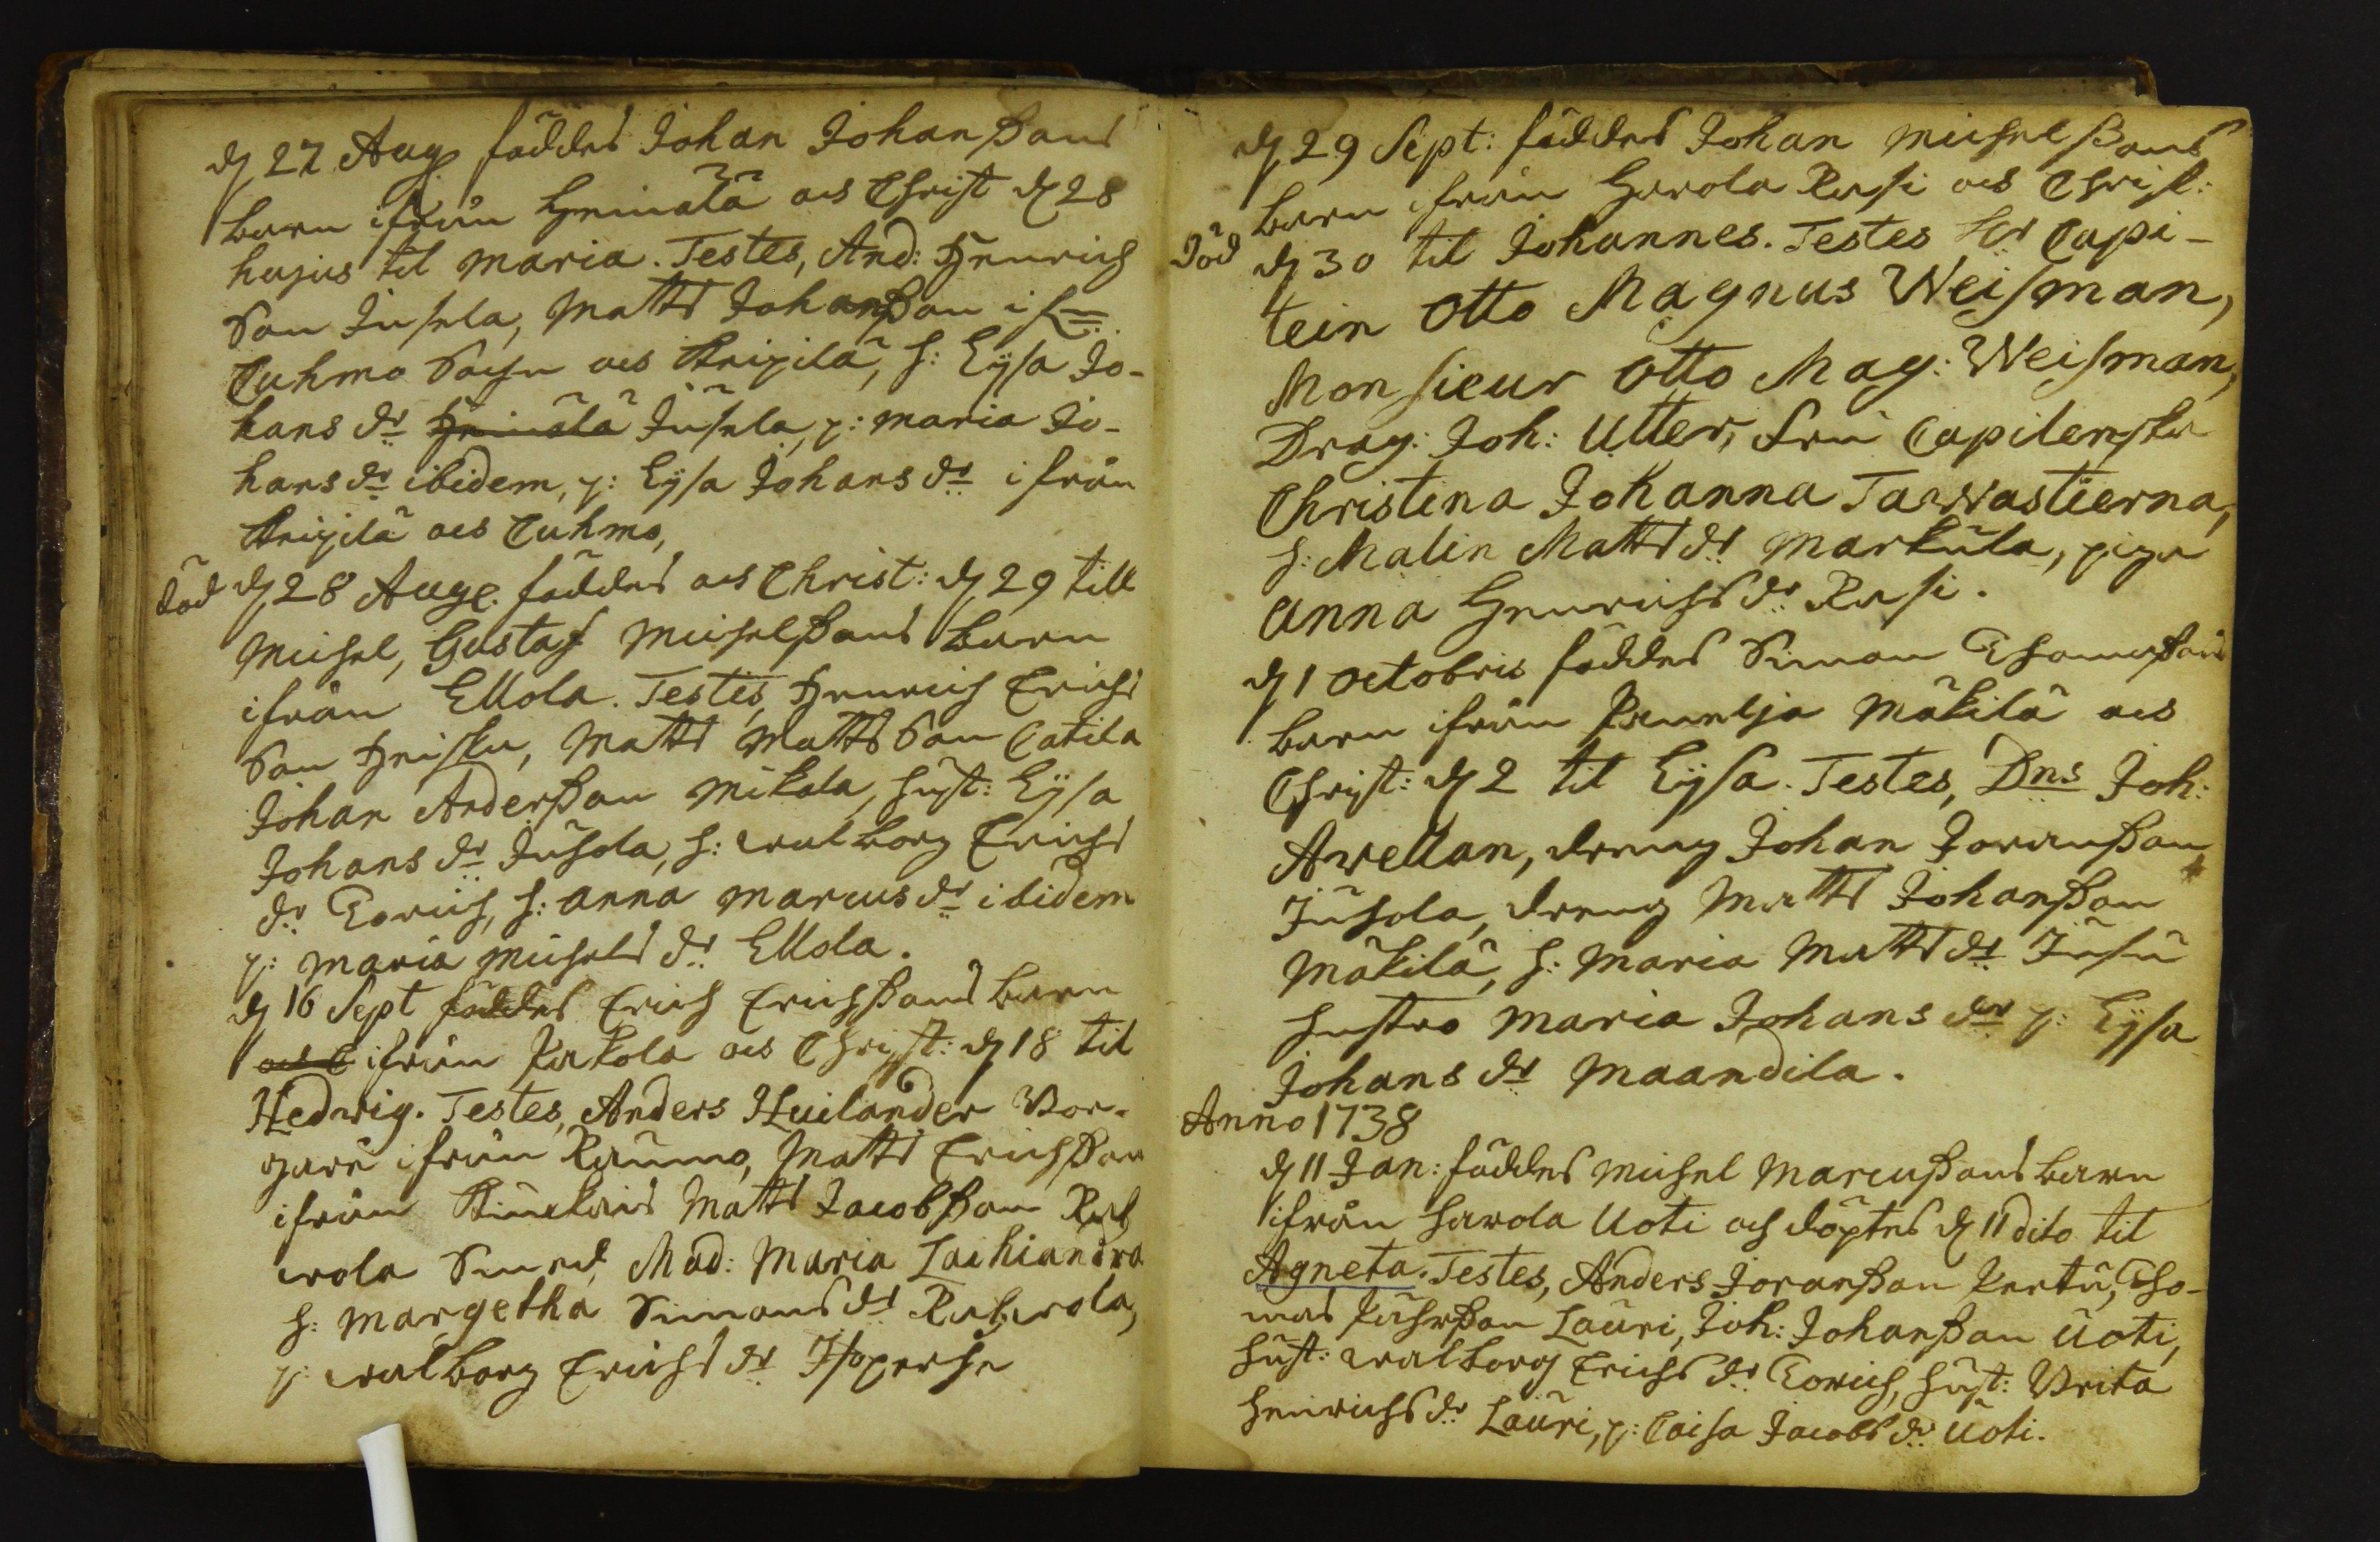 d 27 Aug: föddes Johan Johanßons
barn ifrån Heinälä ock Christ d 28
hujus til Maria. Testes, And: Henrich
Son Jusela, Matts Johanßon if=
Cuhmo Sochn ock Kripilä, h: Lysa Jo-
hans dr Heinälä Jusela, p: Maria Jo-
hans dr ibidem, p: Lysa Johans dr ifrån
Kripilä ock Cuhmo,
död d 28 Aug. föddes ock Christ: d 29 till
Michel, Gustaf Michelßons barn
ifrån Ellola. Testes, Henrich Erichs
Son Heisku, Matts Matts Son Catila
Johan Anderßon Mikola, hust: Lysa
Johans dr Jusola, h: Walborg Erichs
dr Eorich, h: Anna Marcus dr ibidem
p: Maria Michels dr Ellola.
d 16 Sept föddes Erich Erichßons barn
ock C ifrån Kakola ock Christ: d 18 til
Hedwig. Testes, Anders Huilander Bor-
gare ifrån Raumo, Matts Erichßon
ifrån Matts Jacobßon Rah
wola Smed, Mad: Maria Laihiandra
h: Margetha Simons dr Rahwola,
p: Walborg Erichs dr
d 29 Sept: föddes Johan Michelßons
barn ifrån Harola Rasi ock Christ:
död d 30 til Johannes. Testes Hr Capi-
tein Otto Magnus Weisman,
Monsieur Otto Mag: Weisman,
Drag: Joh: Utter, Fru Capitenska
Christina Johanna Tawastierna,
h: Malin Matts dr Markula, piga
Anna Henrichs dr Rasi.
d 1 octobris föddes Simon Thomaßons
barn ifrån Panelja Mäkilä ock
Christ: d 2 til Lysa. Testes, Dns Joh:
Avellan, dreng Johan Joranßon
Jusola, dreng Matts Johanßon
Mäkilä, h: Maria Matts dr Jusu
hustro Maria Johans dr p: Lysa
Johans dr Maandila.
Anno 1738
d 11 Jan: föddes Michel Marcußons barn
ifrån Harola Uoti och döptes d 11 dito til
Agneta. Testes, Anders Joranßon Pertu, Tho-
mas Lauri, Joh: Johanßon Uoti,
hust: Walborg Erichs dr Eorich, hust: Brita
Henrichs dr Lauri, p: Caisa Jacobs dr Uoti.